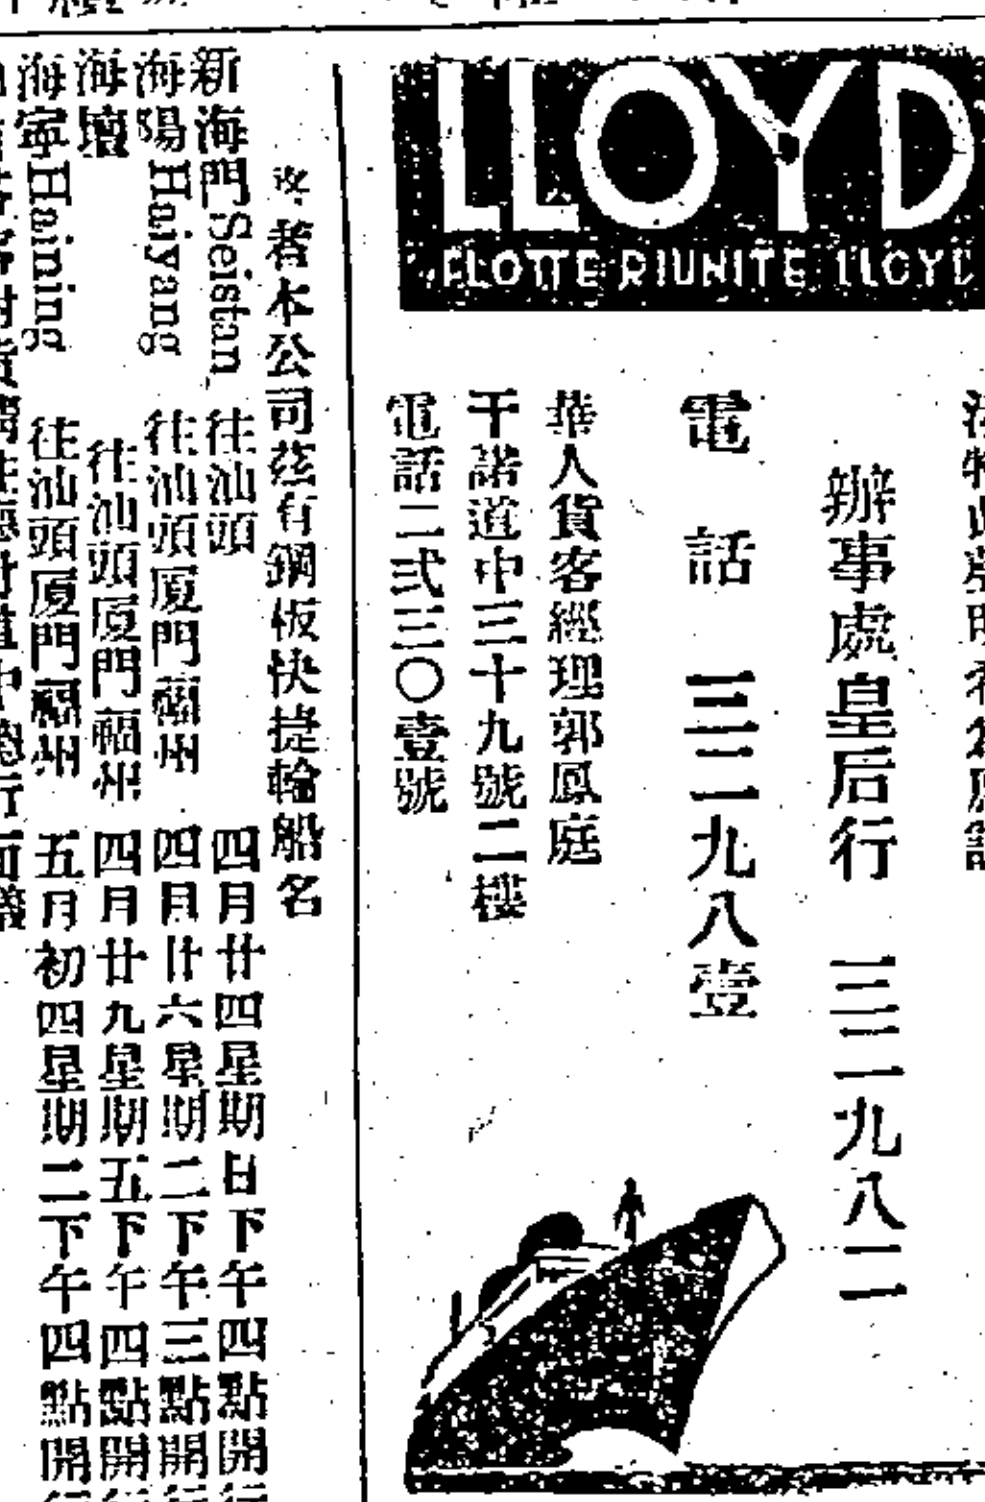 LLOYD
FLOTTE RIUNITE LLOYD
辦事處皇后行 三二一九八二
電話 三二一九八壹
華人貨客經理郭鳳庭
干諾道中三十九號二樓
電話二弍三〇壹號
者本公司茲有鋼板快捷輪船名
新海門Seistan 往汕頭 四月廿四星期日下午四點開行
海陽Haiyang 往汕頭厦門福州 四月廿六星期二下午三點開行
海壇 往汕頭厦門福州 四月廿九星期五下午四點開行
海寧Haining 往汕頭厦門福州 五月初四星期二下午四點開行